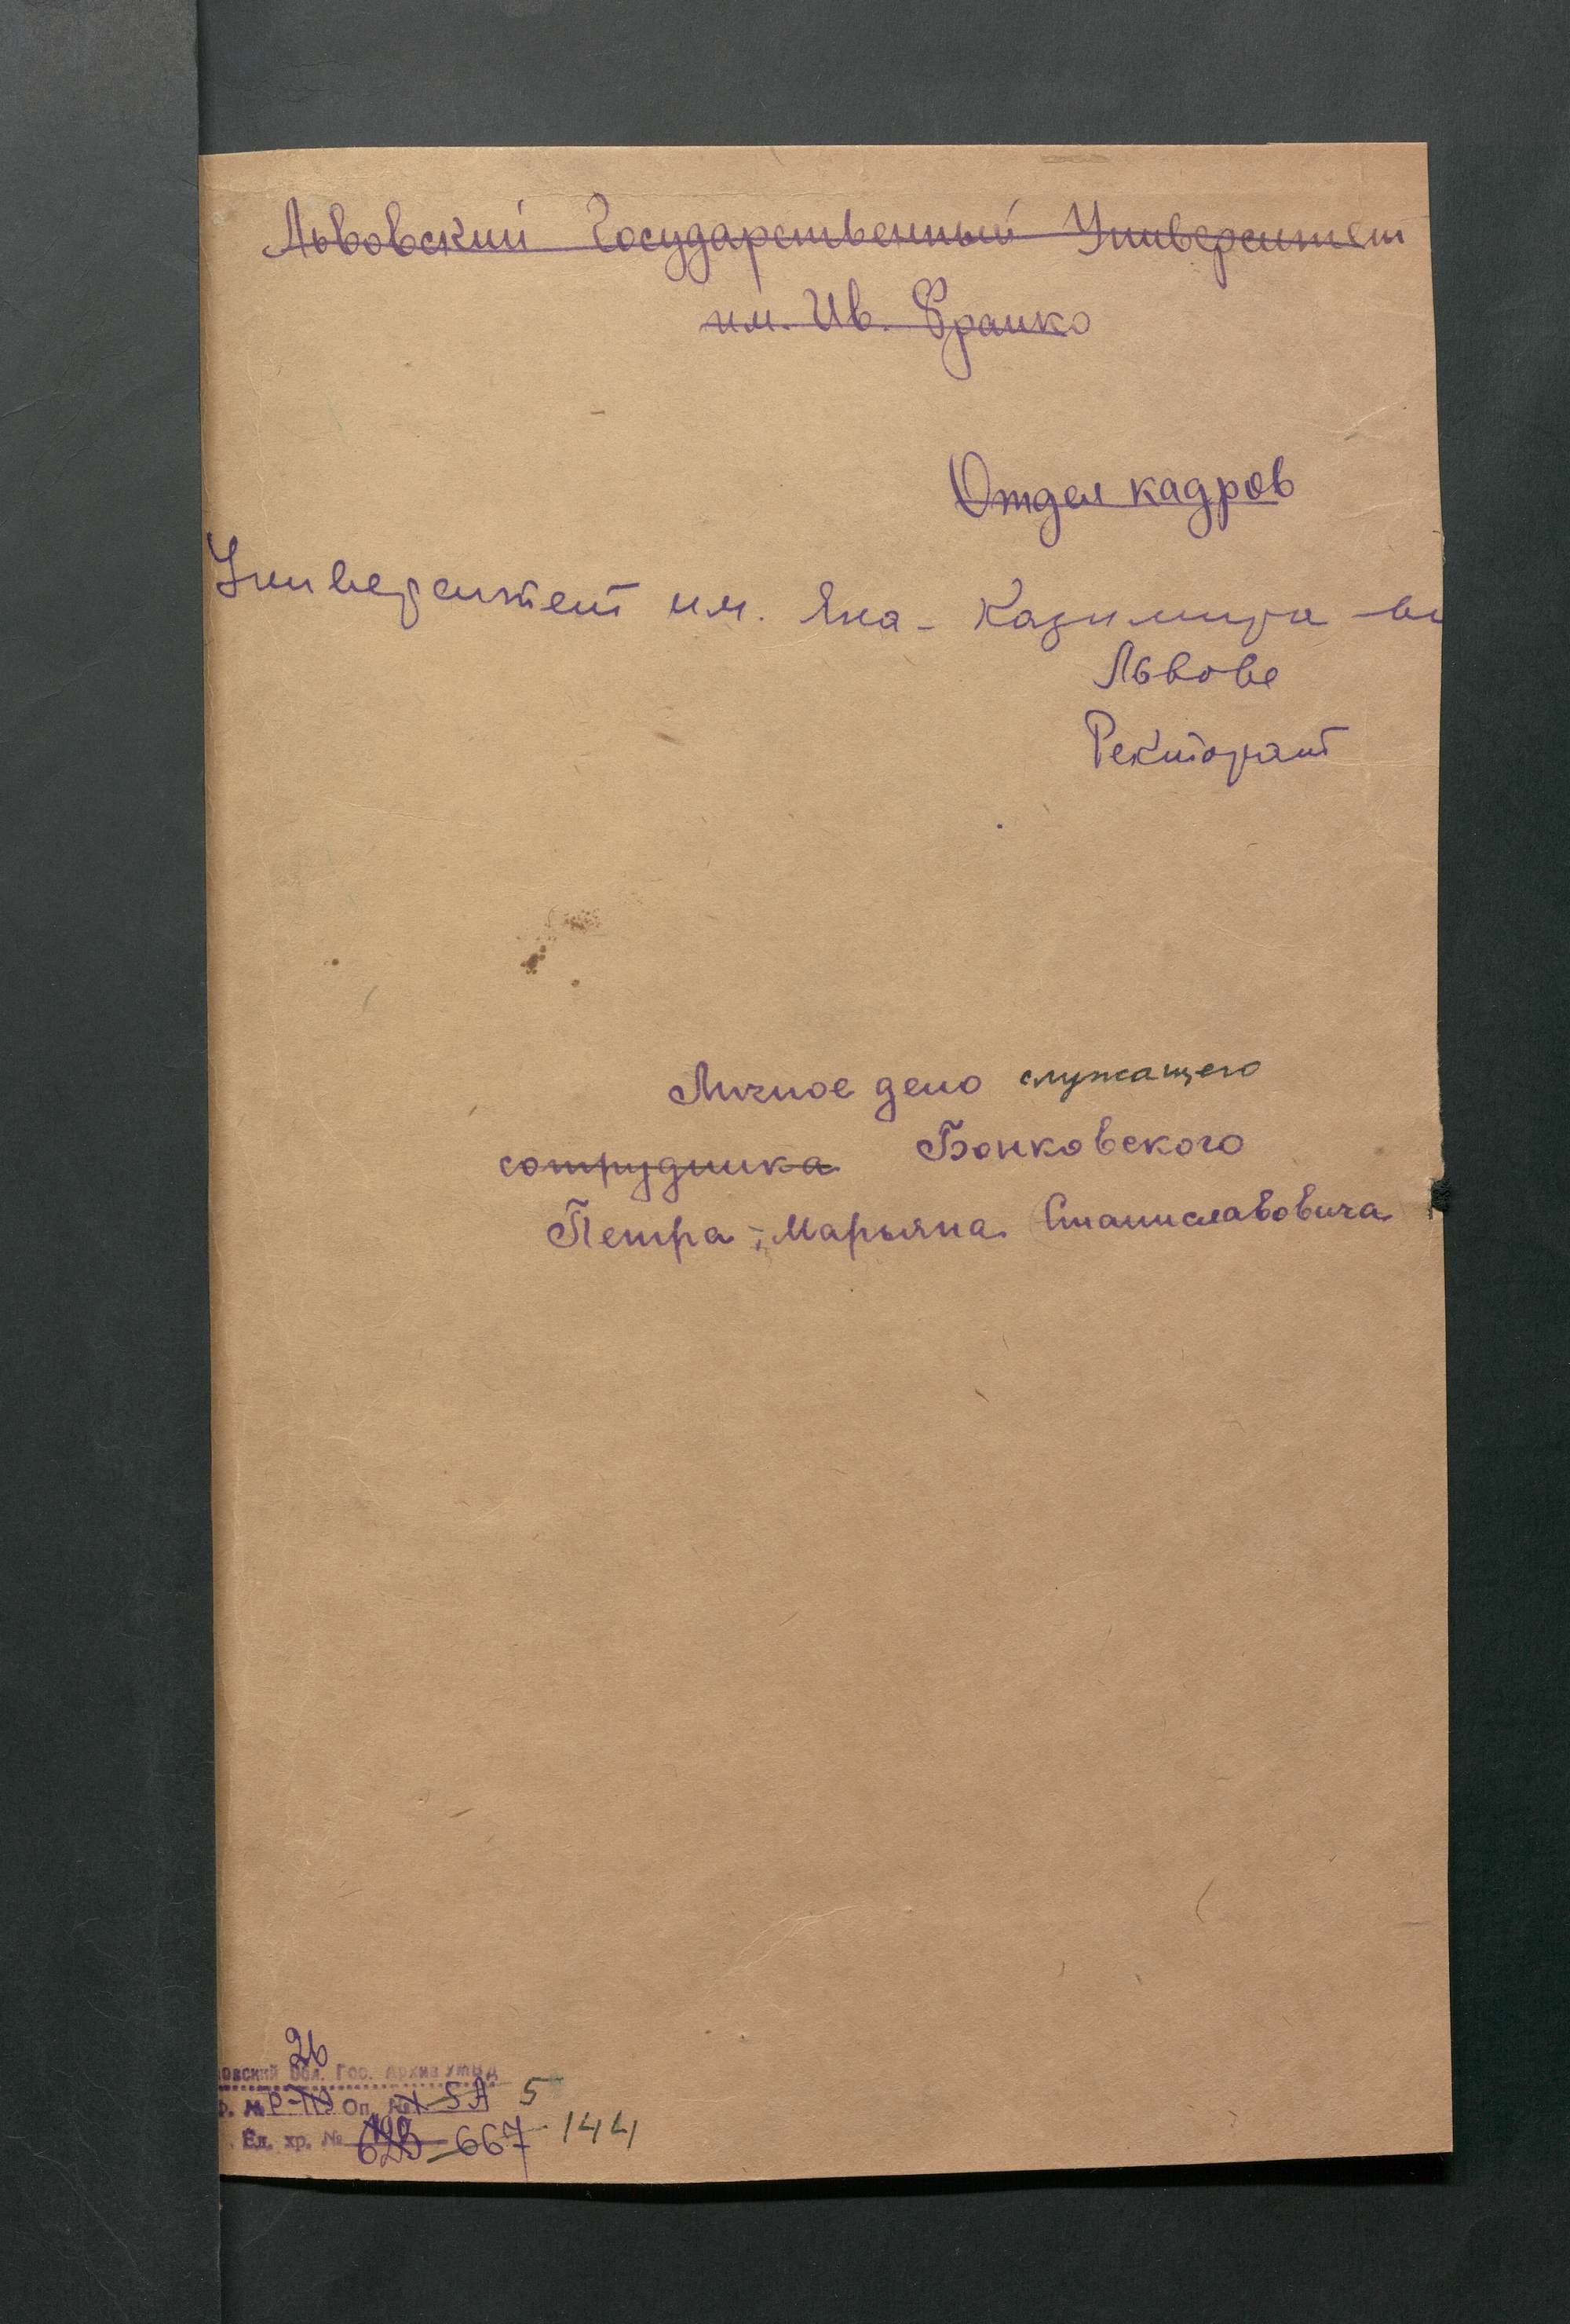 Львовский Государственный Университет
им. Ив. Франко
Отдел кадров
Университет им. Яна-Казимира во
Львове
Ректорат
Личное дело служащего
сотрудника Бонковского
Петра-Марьяна Станиславовича
26
овский Обл. Гос. Архив УМВД
Ф. № Оп. № 5А 5
Ед. хр. № 623 667 144